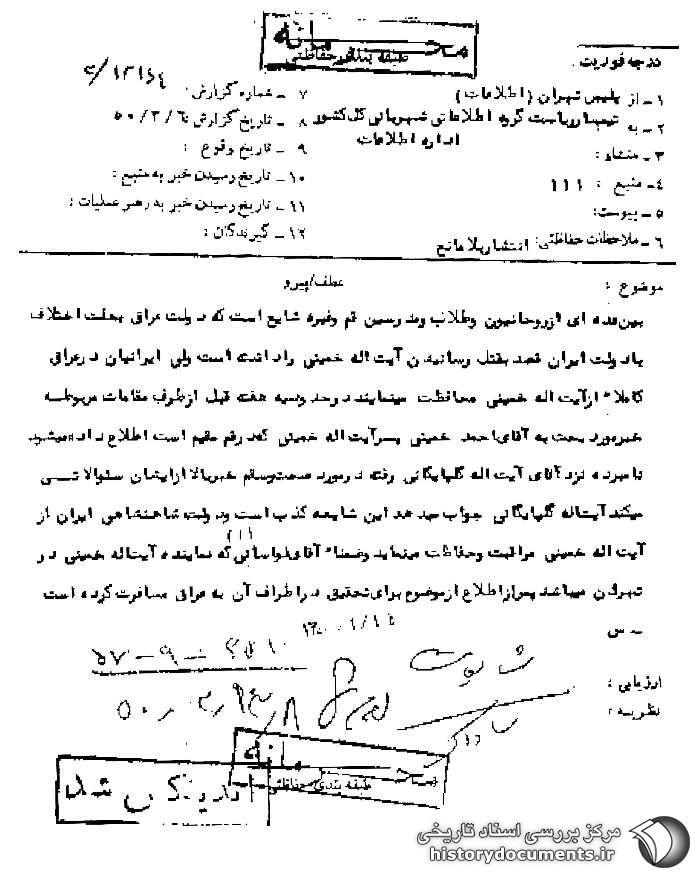 محرمانه
طبقه بندی حفاظتی
درجه فوریت :
۱ – از پلیس تهران (اطلاعات)
۲ – به تیمسار ریاست گروه اطلاعاتی شهربانی کل کشور
اداره اطلاعات
۳ – منشاء :
۴ – منبع : ۱۱۱
۵ – پیوست:
۶ – ملاحظات حفاظتی: انتشار بلامانع
۷ – شماره گزارش:
۸ – تاریخ گزارش ۵۰/۳/۶
۹ – تاریخ وقوع :
۱۰ – تاریخ رسیدن خبر به منبع :
۱۱ – تاریخ رسیدن خبر به رهبر عملیات :
۱۲ – گیرندگان :
موضوع : عطف/پیرو
بین عده ای از روحانیون وطلاب ومدرسین قم وغیره شایع است که دولت عراق بعلت اختلاف
با دولت ایران قصد بقتل رسانیدن آیت اله خمینی را داشته است ولی ایرانیان در عراق
کاملا" از آیت اله خمینی محافظت مینمایند در حدود سه هفته قبل از طرف مقامات مربوطه
خبر مورد بحث به آقای احمد خمینی پسر آیت اله خمینی که در قم مقیم است اطلاع داده میشود
نامبرده نزد آقای آیت اله گلپایگانی رفته در مورد صحت وسقم خبر بالا از ایشان سئوالاتی
میکند آیت اله گلپایگانی جواب میدهد این شایعه کذب است ودولت شاهنشاهی ایران از
آیت اله خمینی مراقبت وحفاظت مینماید وضمنا" آقای لواسانی (۱) که نماینده آیت اله خمینی در
تهران میباشد پس از اطلاع از موضوع برای تحقیق در اطراف آن به عراق مسافرت کرده است
– س
ارزیابی :
نظریه :
محرمانه
طبقه بندی حفاظتی
مرکز بررسی اسناد تاریخی
historydocuments.ir